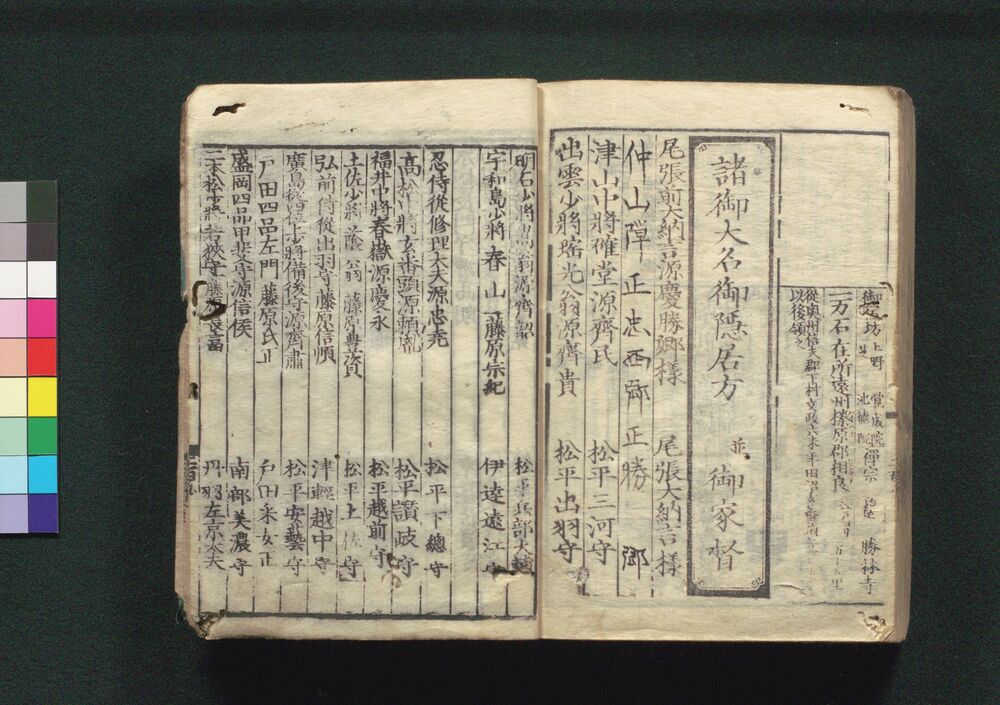 御宿坊 上野 覚成院 禅宗 勝林寺
一万石在所遠州榛原郡相良
従奥州信夫郡下村文政六未年
以後領之
諸御大名御隠居方 並 御家督
尾張前大納言源慶勝卿様 尾張大納言様
津山中将確堂源斉民 松平三河守
出雲少将瑤光翁源斉貴 松平出羽守
明石少将 翁源斉韶 松平兵部大輔
宇和島少将春山藤原宗紀 伊達遠江守
忍侍従修理大夫源忠尭 松平下總守
高松中将玄蕃頭源頼胤 松平讃岐守
福井中将春嶽源慶永 松平越前守
土佐少将 翁 藤原豊資 松平土佐守
弘前侍従出羽守藤原信順 津軽越中守
廣島 少将備後守源斉粛 松平安藝守
戸田四品左門藤原氏正 戸田采女正
盛岡四品甲斐守源信侯 南部美濃守
二本松 若狭守藤原長富 丹羽左京大夫